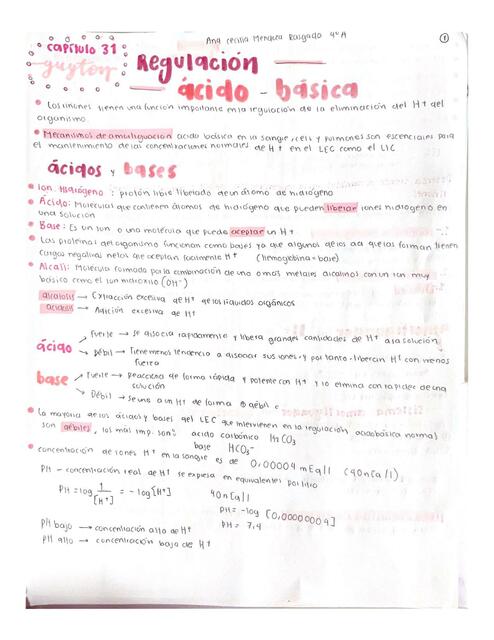 Ana Cecilia Mendoza Raigado 4º A
1
Capítulo 31
guyton
Regulación
ácido - básica
Los riñones tienen una función importante en la regulación de la eliminación del H+ del
organismo
Mecanismos de amortiguación acido básica en la sangre, cells y pulmones son escenciales para
el mantenimiento de las concentraciones normales de H+ en el LEC como el LIC
ácidos y bases
Ion Hidrógeno : protón libre liberado de un átomo de hidrógeno
Ácido: Moleculas que contienen átomos de hidrógeno que pueden liberar iones hidrogeno en
una solución
Base: Es un ion o una molécula que puede aceptar un H+
Las proteínas del organismo funcionan como bases ya que algunos de los aa que las forman tienen
cargas negativas netas que aceptan facilmente H+ (hemoglobina = base)
Alcali: Molécula formada por la combinación de una o mas metales alcalinos con un ion muy
básico como el ion hidroxilo (OH-)
alcalosis → Extracción excesiva de H+ de los liquidos orgánicos
acidosis → Adición excesiva de H+
ácido
Fuerte → Se disocia rapidamente y libera grandes cantidades de H+ a la solución
Débil → Tiene menos tendencia a disociar sus iones, y por tanto liberan H+ con menos
fuerza
base
Fuerte → Reacciona de forma rápida y potente con H+ y lo elimina con rapidez de una
solución
Débil → Se une a un H+ de forma débil
La mayoria de los ácidos y bases del LEC que intervienen en la regulación acidobásica normal
son débiles, los más imp. son: acido carbónico H2CO3
base HCO3-
concentración de iones H+ en la sangre es de 0,00004 mEq/l (40nEq/l)
PH - concentración real de H+ se expresa en equivalentes por litro
PH = log 1/[H+] = - log [H+]
40nEq/l
PH = -log [0,00000004]
PH = 7,4
PH bajo → concentración alta de H+
PH alto → concentración baja de H+